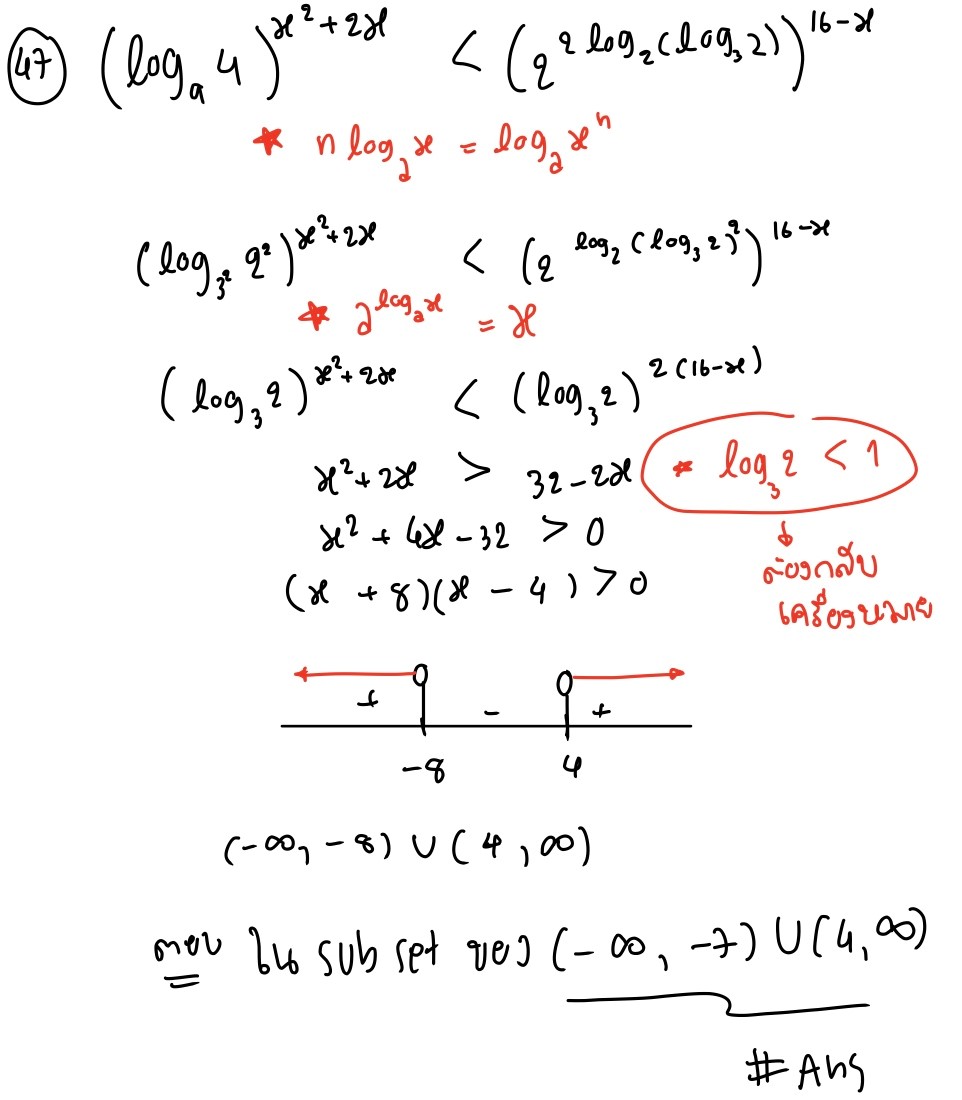 47 (log₉ 4)^(x²+2x) < (2^(2 log₂(log₃ 2)))^(16-x)
* n logₐ x = logₐ xⁿ
(log_(3²) 2²)^(x²+2x) < (2^(log₂(log₃ 2)²))^(16-x)
* a^(logₐ x) = x
(log₃ 2)^(x²+2x) < (log₃ 2)^(2(16-x))
x²+2x > 32-2x * log₃ 2 < 1
x² + 4x - 32 > 0
ต้องกลับ
(x + 8)(x - 4) > 0
เครื่องหมาย
+ - +
-8 4
(-∞, -8) ∪ (4, ∞)
ตอบ เป็น subset ของ (-∞, -7) ∪ (4, ∞)
# Ans